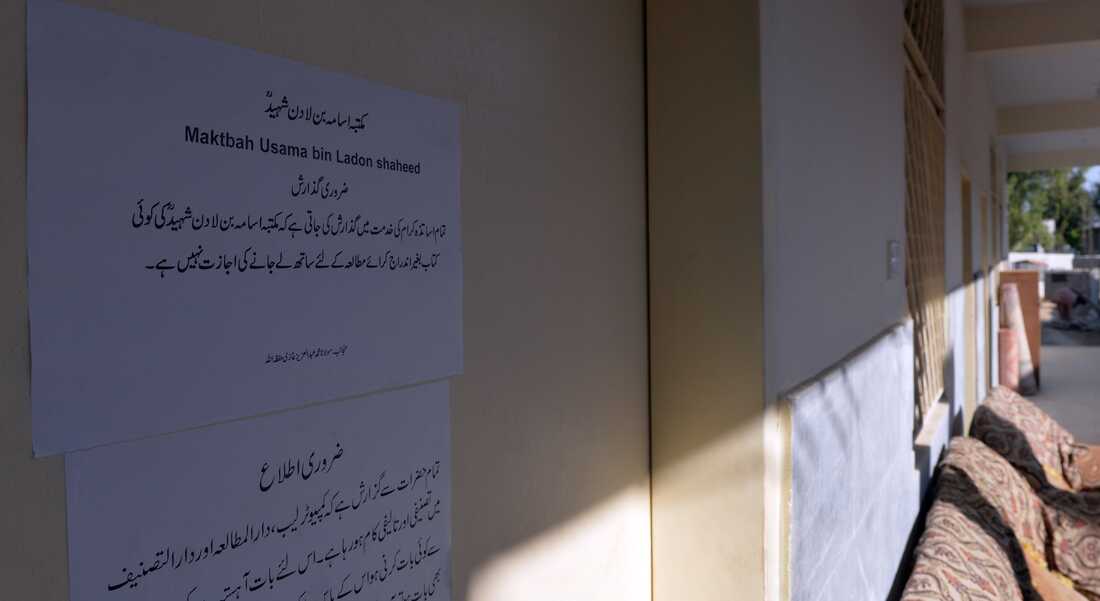 مکتبہ اسامہ بن لادن شہیدؒ
Maktbah Usama bin Ladon shaheed
ضروری گذارش
تمام اساتذہ کرام کی خدمت میں گذارش کی جاتی ہے کہ مکتبہ اسامہ بن لادن شہیدؒ کی کوئی
کتاب بغیر اندراج کرائے مطالعہ کے لئے ساتھ لے جانے کی اجازت نہیں ہے۔
منجانب۔ مولانا محمد عبدالعزیز غازی حفظہ اللہ
ضروری اطلاع
تمام حضرات سے گزارش ہے کہ کمپیوٹر لیب، دار المطالعہ اور دار التصنیف
میں تصنیفی اور تالیفی کام ہو رہا ہے۔ اس لئے بات آہستہ
سے کوئی بات کرنی ہو اس کے پاس